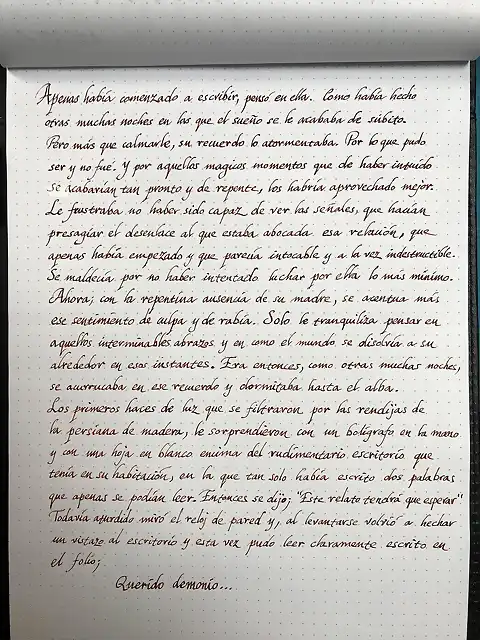 Apenas había comenzado a escribir, pensó en ella. Como había hecho
otras muchas noches en las que el sueño se le acababa de súbito.
Pero más que calmarle, su recuerdo lo atormentaba. Por lo que pudo
ser y no fué. Y por aquellos magicos momentos que de haber intuido
se acabarían tan pronto y de reponte, los habría aprovechado mejor.
Le frustraba no haber sido capaz de ver las señales, que hacían
presagiar el desenlace al que estaba abocada esa relación, que
apenas había empezado y que parecía intocable y a la vez indestructible.
Se maldecía por no haber intentado luchar por ella lo más mínimo.
Ahora; con la repentina ausencia de su madre, se acentua más
ese sentimiento de culpa y de rabia. Solo le tranquiliza pensar en
aquellos interminables abrazos y en como el mundo se disolvía a su
alrededor en esos instantes. Era entonces, como otras muchas noches,
se acurrucaba en ese recuerdo y dormitaba hasta el alba.
Los primeros haces de luz que se filtraron por las rendijas de
la persiana de madera, le sorprendieron con un bolígrafo en la mano
y con una hoja en blanco encima del rudimentario escritorio que
tenía en su habitación, en la que tan solo había escrito dos palabras
que apenas se podían leer. Entonces se dijo; "Este relato tendrá que esperar"
Todavía aturdido miró el reloj de pared y, al levantarse volvió a hechar
un vistazo al escritorio y esta vez pudo leer claramente escrito en
el folio;
Querido demonio...